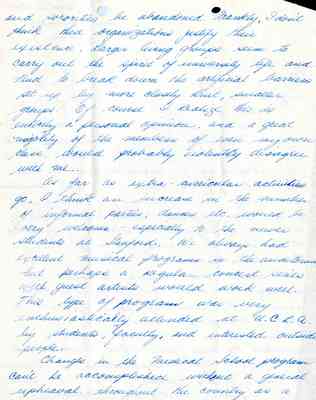 and sororities be abandoned. Frankly, I don't
think these organizations justify their
existence. Larger living groups seem to
carry out the spirit of university life and
tend to break down the artificial barriers
set up by more closely knit, smaller
groups. Of course I realize this is
entirely a personal opinion, and a great
majority of the members of even my own
class would probably violently disagree
with me.
As far as extra curricular activities
go, I think an increase in the number
of informal parties, dances etc. would be
very welcome especially to the newer
students at Stanford. We always had
excellent musical programs in the auditorium
but perhaps a regular concert series
with guest artists would work well.
This type of program was very
enthusiastically attended at U.C.L.A.
by students, faculty, and interested outside
people.
Changes in the Medical School program
can't be accomplished without a general
upheaval throughout the country as a